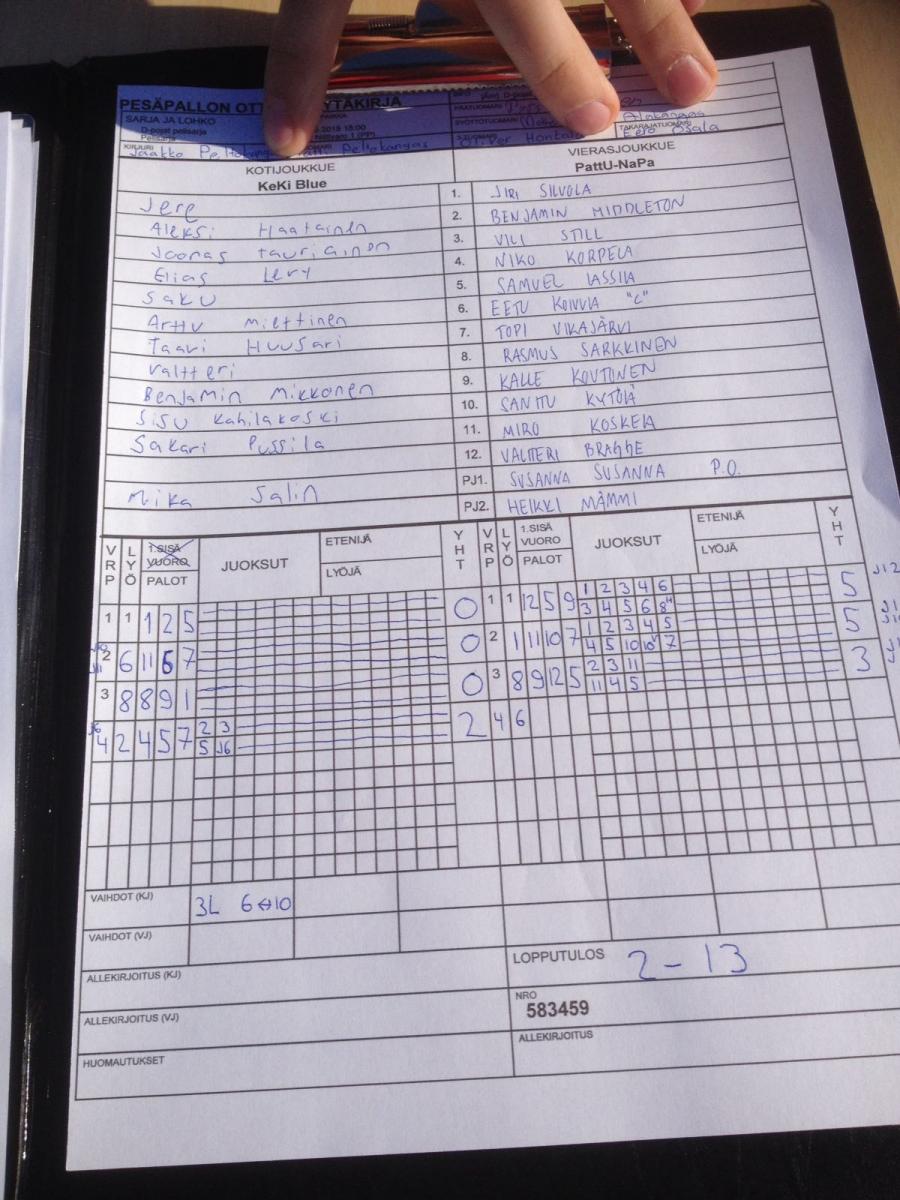 PESÄPALLON
SARJA JA LOHKO
D-pojat pelisarja
SYÖTTÖTUOMARI
TAKARAJATUOMARI
Eero Osala
KIRJURI
Jaakko
Peltokangas
KOTIJOUKKUE
KeKi Blue
VIERASJOUKKUE
PattU-NaPa
Jere 1. JIRI SILVOLA
Aleksi Haatainen 2. BENJAMIN MIDDLETON
Joonas tauriainen 3. VILI STILL
Elias Levy 4. NIKO KORPELA
Saku 5. SAMUEL LASSILA
Arttu miettinen 6. EETU KOIVULA "C"
Taavi Huusari 7. TOPI VIKAJÄRVI
Valtteri 8. RASMUS SARKKINEN
Benjamin Mikkonen 9. KALLE KOUTONEN
Sisu Kahilakoski 10. SANTTU KYTÖLÄ
Sakari Pussila 11. MIRO KOSKELA
12. VALTTERI BRAGGE
PJ1. SUSANNA SUSANNA P.O.
Mika Salin PJ2. HEIKKI MÄMMI
VRP LYÖ 1.SISÄ VUORO PALOT JUOKSUT ETENIJÄ LYÖJÄ YHT VRP LYÖ 1.SISÄ VUORO PALOT JUOKSUT ETENIJÄ LYÖJÄ YHT
1 1 1 2 5 0 1 1 12 5 9 1 2 3 4 6 5
3 4 5 6 8
2 6 11 6 7 0 2 1 11 10 7 1 2 3 4 5 5
4 5 10 10 7
3 8 8 9 1 0 3 8 9 12 5 2 3 11 3
11 4 5
4 2 4 5 7 2 3 2 4 6
5 J6
VAIHDOT (KJ) 3L 6↔10
VAIHDOT (VJ)
LOPPUTULOS 2 - 13
ALLEKIRJOITUS (KJ)
NRO
583459
ALLEKIRJOITUS (VJ)
ALLEKIRJOITUS
HUOMAUTUKSET